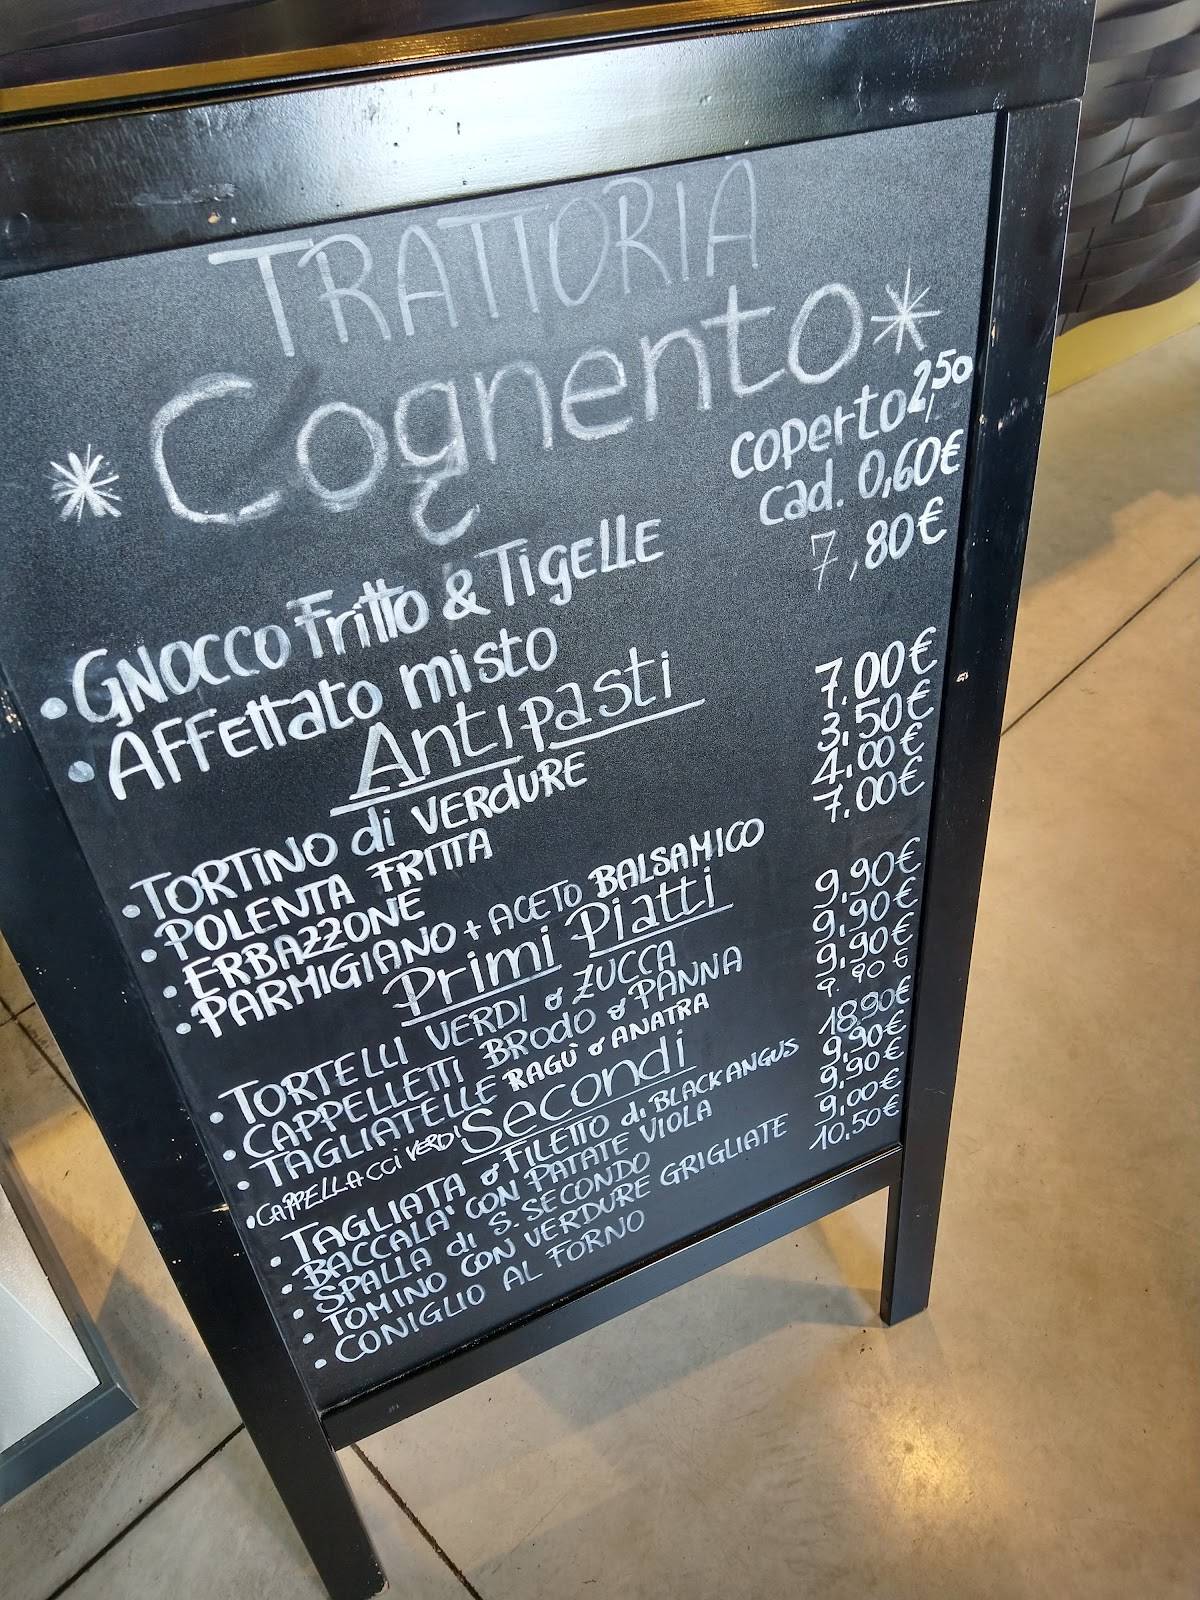 TRATTORIA
* Cognento *
coperto 2,50
• GNOCCO Fritto & TigELLE cad. 0,60€
• AFFETTATO misto 7,80€
Antipasti
• TORTINO di VERdURE 7.00€
• POLENTA FRITTA 3,50€
• ERBAZZONE 4,00€
• PARMIGIANO + ACETO BALSAMICO 7.00€
Primi Piatti
• TORTELLI VERDI o ZUCCA 9,90€
• CAPPELLETTI BRODO o PANNA 9,90€
• TAGLIATELLE RAGÙ o ANATRA 9,90€
• CAPPELLACCI VERDI 9,90€
Secondi
• TAGLIATA o FILETTO di BLACK ANGUS 18,90€
• BACCALA' CON PATATE VIOLA 9,90€
• SPALLA di S. SECONDO 9,90€
• TOMINO CON VERDURE GRIGLIATE 9,00€
• CONIGLIO AL FORNO 10,50€